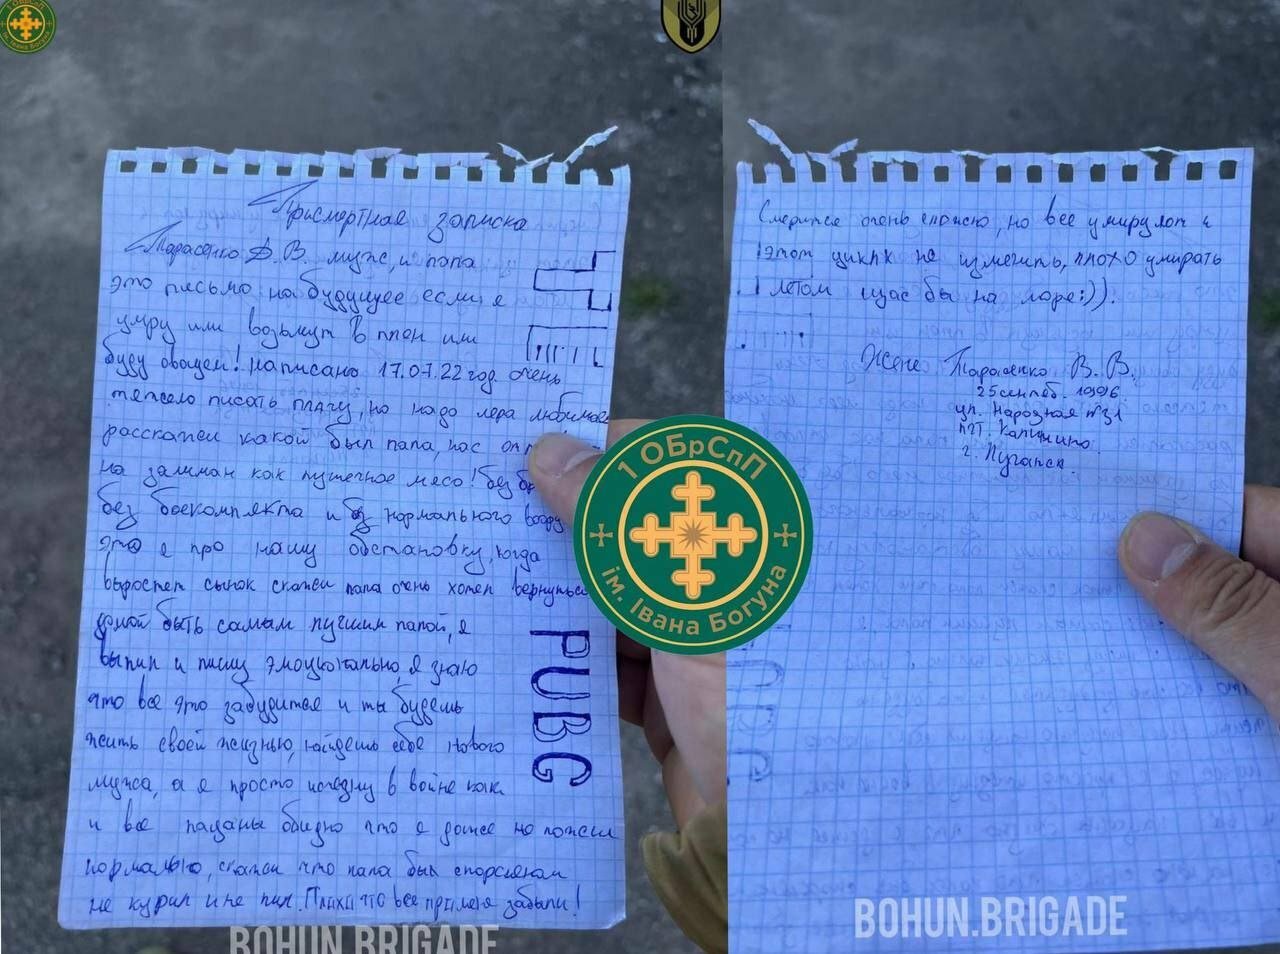 1 ОБрСпП
ім. Івана Богуна
Присмертная записка
Тарасенко Д. В. муж, и папа
это письмо на будущее если я
умру или возьмут в плен или
буду овощем! написано 17.07.22 год очень
тяжело писать плачу, но надо лера любимая
расскажи какой был папа, нас отп
на залман как пушечное мясо! без б
без боекомплекта и без нормального воору
это я про нашу обстановку, когда
выростет сынок скажи папа очень хотел вернуться
домой быть самым лучшим папой, я
выпил и пишу эмоционально, я знаю
что все это забудится и ты будешь
жить своей жизнью, найдешь себе нового
мужа, а я просто исчезну в войне как
и все пацаны обидно что я даже не пожил
нормально, скажи что папа был спорсменом
не курил и не пил. Плиха что все про меня забыли!
PUBG
BOHUN.BRIGADE
Смерится очень сложно, но все умирулот и
этот цикл не изменить, плохо умирать
летом щас бы на море:)).
Жене Тарасенко В. В.
25 сентяб. 1996
ул. Народная №31
пгт. Калинино
г. Луганск.
1 ОБрСпП
ім. Івана Богуна
BOHUN.BRIGADE